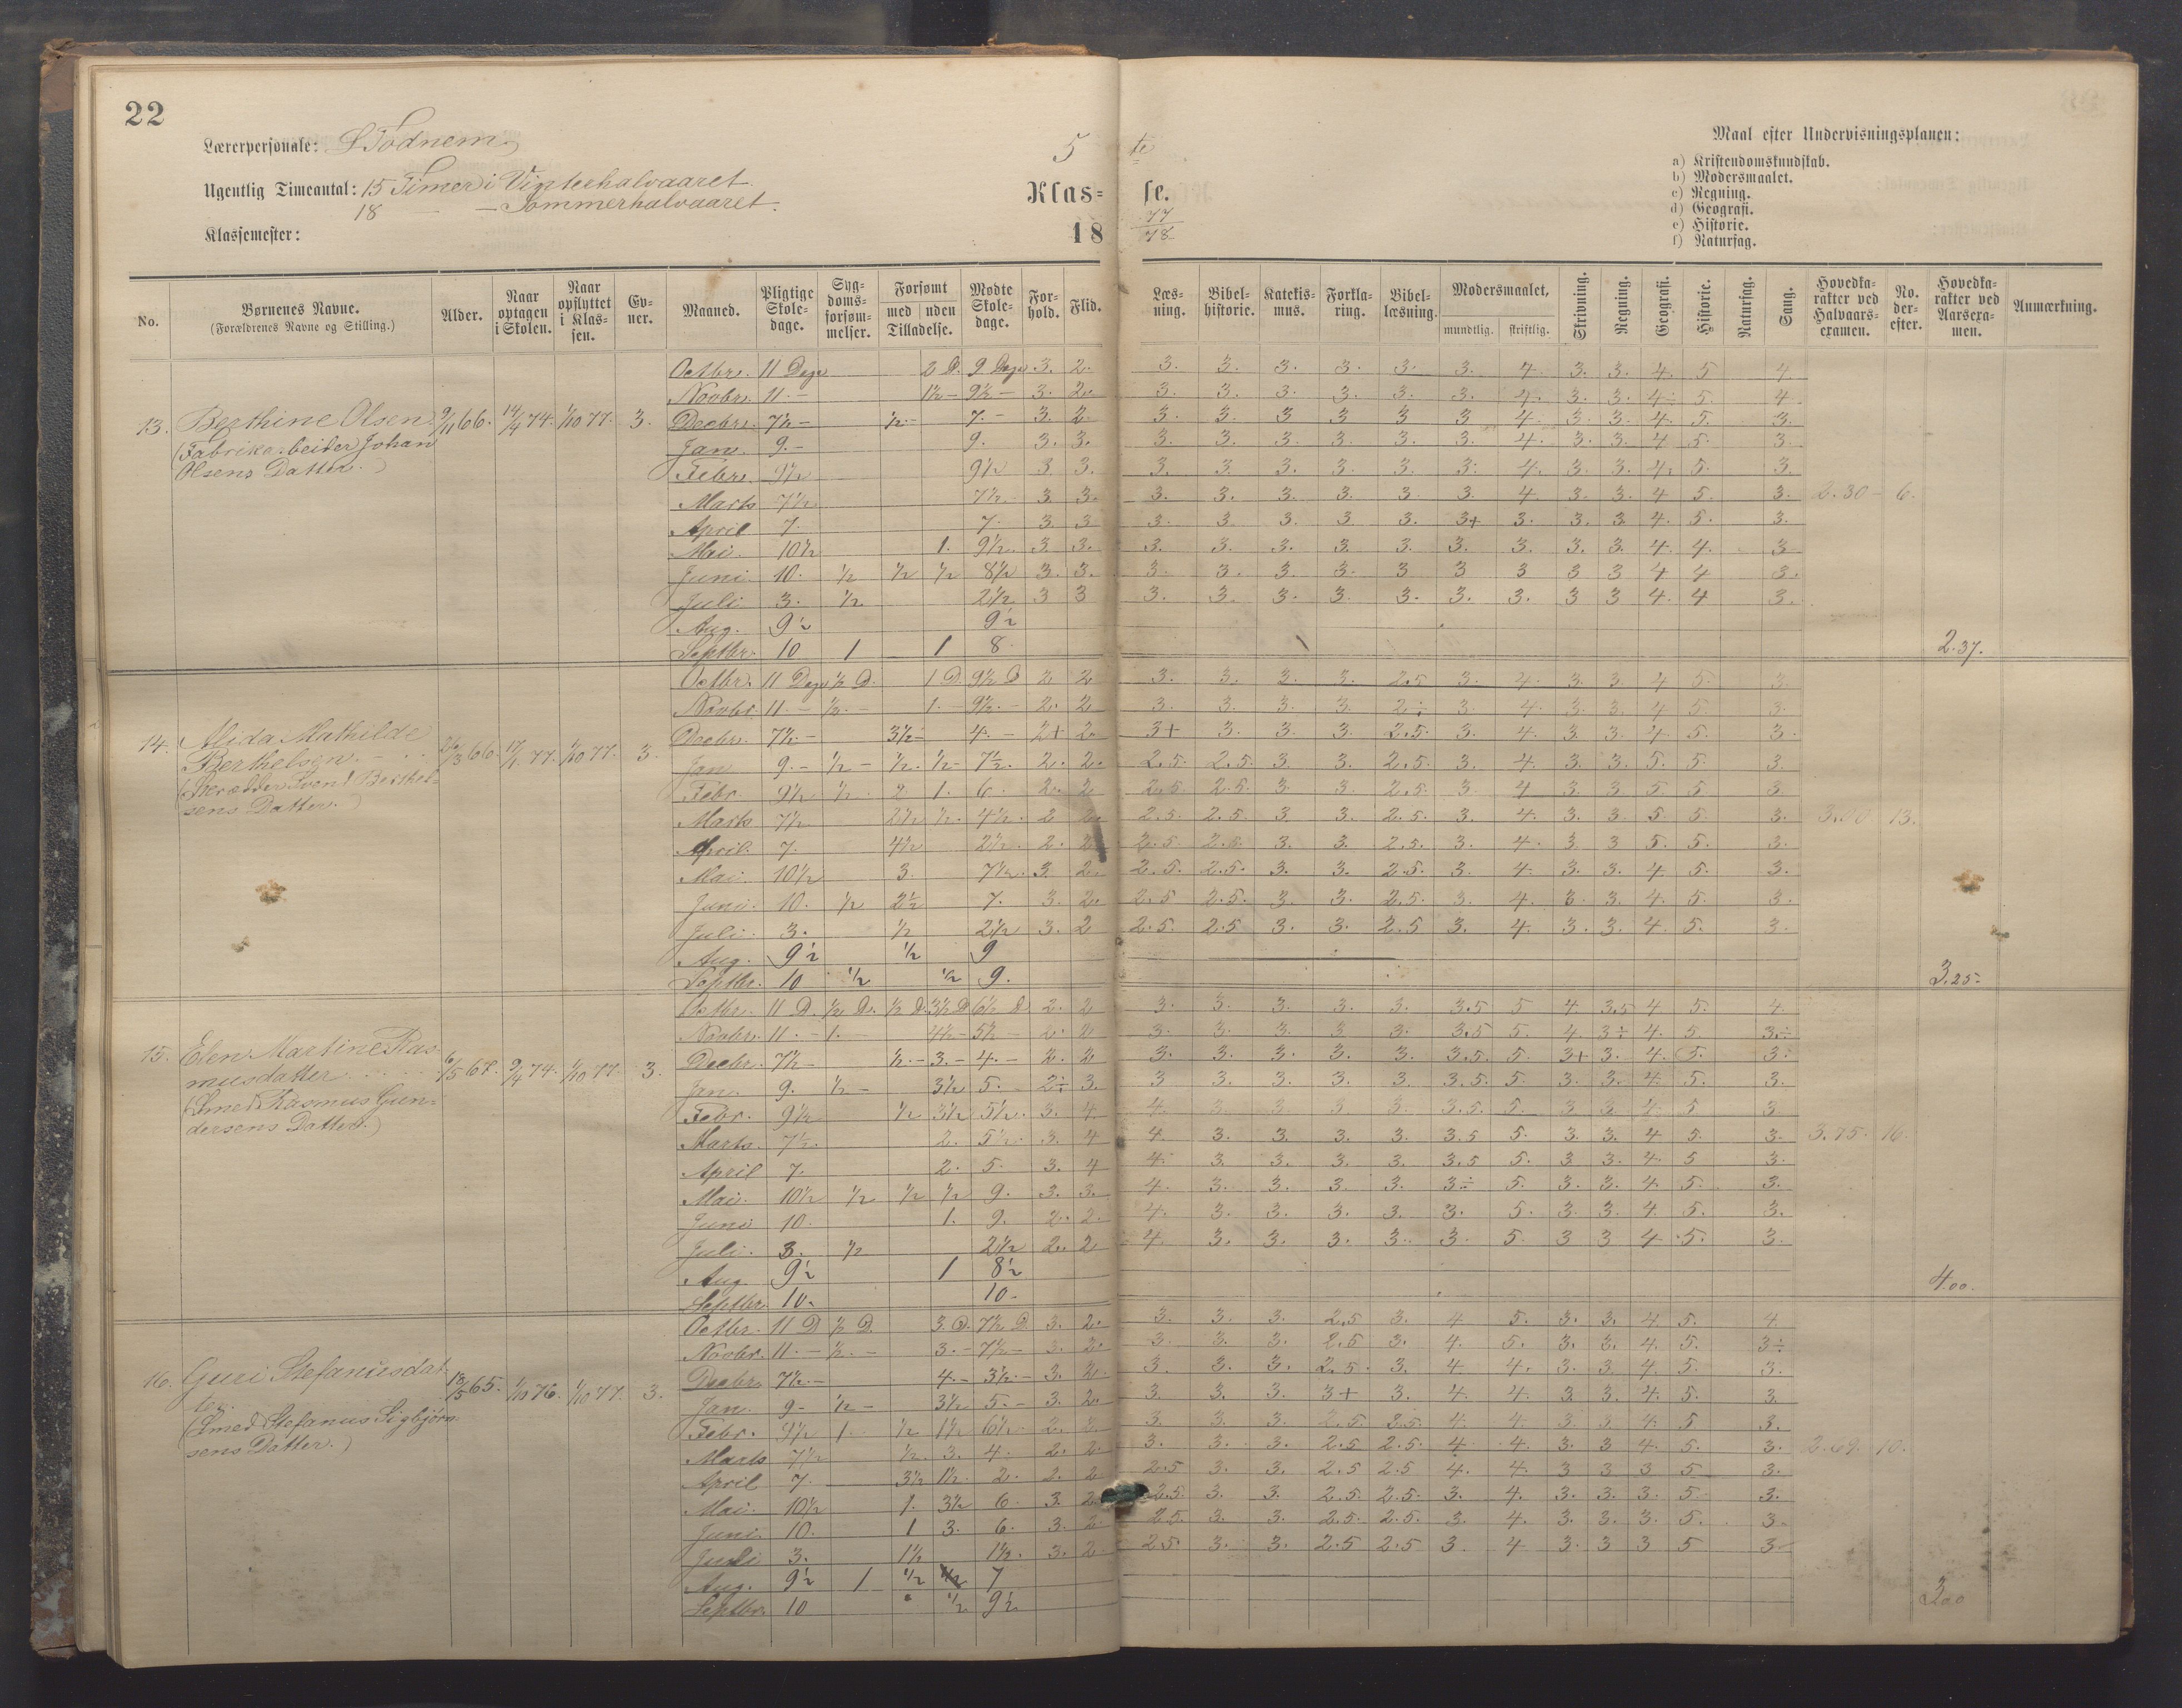 22
Lærerpersonale: S Todnem.
Ugentlig Timeantal: 15 Timer i Vinterhalvaaret
18 — — Sommerhalvaaret.
Klassemester:
5 te
Klas= se.
18 77/78
Maal efter Undervisningsplanen:
a) Kristendomskundskab.
b) Modersmaalet.
c) Regning.
d) Geografi.
e) Historie.
f) Naturfag.
No. Børnenes Navne. (Forældrenes Navne og Stilling.) Alder. Naar optagen i Skolen. Naar opflyttet i Klassen. Evner. Maaned. Pligtige Skoledage. Sygdomsforsømmelser. Forsømt med uden Tilladelse. Mødte Skoledage. Forhold. Flid. Læsning. Bibelhistorie. Katekismus. Forklaring. Bibellæsning. Modersmaalet, mundtlig. skriftlig. Skrivning. Regning. Geografi. Historie. Naturfag. Sang. Hovedkarakter ved Halvaarsexamen. No. derefter. Hovedkarakter ved Aarsexamen. Anmærkning.
13. Berthine Olsen. 9/11 66. 14/4 74. 1/10 77. 3.
(Fabrikarbeider Johan
Olsens Datter.)
Octbr. 11 Dage 2 D. 9 Dage 3. 2. 3. 3. 3. 3. 3. 3. 4. 3. 3. 4. 5 4
Novbr. 11. — 1½ — 9½ — 3. 2. 3. 3. 3. 3. 3. 3. 4. 3. 3. 4. 5. 4.
Decbr. 7½ — ½ — 7. — 3. 2 3. 3. 3 3 3 3 4 3. 3. 4. 5. 3.
Jan. 9. — 9. 3. 3. 3. 3. 3. 3. 3. 3. 4. 3. 3. 4 5. 3.
Febr. 9½ 9½ 3 3. 3. 3. 3. 3. 3. 3. 4. 3. 3. 4. 5. 3.
Marts 7½ 7½ 3 3. 3. 3. 3. 3. 3. 3. 4 3. 3. 4 5. 3. 2.30 6.
April 7. 7. 3. 3 3. 3. 3. 3. 3. 3+ 3. 3. 3 4. 5. 3.
Mai. 10½ 1. 9½ 3. 3. 3. 3. 3. 3. 3. 3. 3. 3. 3. 4. 4. 3
Juni. 10. ½ ½ ½ 8½ 3. 3. 3. 3. 3. 3. 3 3 3 3 3 4 4 3.
Juli 3. ½ 2½ 3 3 3. 3. 3. 3. 3. 3. 3. 3 3 4. 4 3.
Aug. 9½ 9½
Septbr. 10 1 1 8. 2.37.
14. Alida Mathilde
Berthelsen. 26/3 66. 17/1 77. 1/10 77. 3.
(Skrædder Svend Berthel=
sens Datter.)
Octbr. 11 Dage ½ D. 1 D. 9½ D 2 2 3. 3. 3. 3. 2.5 3. 4. 3. 3. 4 5. 3.
Novbr. 11 — ½. — 1. — 9½. — 2. 2 3. 3. 3. 3. 2÷ 3. 4. 3. 3. 4 5. 3.
Decbr. 7½ — 3½ — 4. — 2+ 2. 3+ 3. 3. 3. 2.5. 3. 4. 3. 3. 4. 5. 3.
Jan 9. — ½ — ½. ½ — 7½. 2. 2. 2.5. 2.5. 3. 3. 2.5. 3. 4. 3. 3. 5. 5. 3
Febr. 9½ ½. 2 1. 6. 2. 2 2.5. 2.5. 3. 3. 2.5. 3. 4 3. 3 5. 5. 3
Marts 7½ 2½ ½. 4½. 2 2. 2.5. 2.5. 3. 3. 2.5. 3. 4. 3. 3. 5. 5. 3. 3.00 13.
April. 7. 4½ 2½. 2. 2 2.5. 2.5. 3. 3. 2.5. 3. 4. 3. 3 5. 5. 3.
Mai. 10½ 3. 7½. 3. 2. 2.5. 2.5. 3. 3. 2.5. 3 4. 3. 3. 4. 5. 3.
Juni. 10. ½ 2½ 7. 3. 2. 2.5 2.5. 3. 3. 2.5. 3. 4. 3. 3. 4. 5. 3.
Juli. 3. ½ 2½ 3. 2 2.5. 2.5 3. 3. 2.5 3. 4. 3. 3. 4 5. 3.
Aug. 9½ ½ 9
Septbr. 10 ½ ½ 9. 3.25.
15. Elen Martine Ras
musdatter 6/5 67. 9/4 74. 1/10 77. 3.
(Smed Rasmus Gun=
dersens Datter.)
Octbr. 11 D. ½ D. ½ D. 3½ D 6½ D. 2. 2 3. 3. 3. 3. 3. 3.5 5 4. 3.5 4 5. 4.
Novbr. 11. — 1. 4½ — 5½ — 2. 2 3. 3. 3. 3 3. 3.5 5. 4 3÷ 4. 5. 3÷
Decbr. 7½ — ½. — 3. — 4. — 2. 2 3. 3. 3. 3. 3. 3.5. 5. 3+ 3. 4. 5. 3.
Jan. 9. ½ — 3½ 5. — 2÷ 3. 3 3. 3. 3. 3. 3.5. 5. 3. 3. 4. 5. 3.
Febr. 9½ ½ 3½ 5½. 3. 4. 4. 3. 3. 3 3. 3.5. 5. 3 3. 4. 5 3
Marts. 7½. 2. 5½. 3. 4 4. 3. 3. 3. 3. 3.5 5. 3. 3. 4 5. 3. 3.75. 16.
April 7. 2. 5. 3. 4 4. 3. 3. 3. 3. 3.5 5. 3 3. 4. 5 3.
Mai. 10½ ½ ½ ½ 9. 3. 3. 4. 3. 3. 3. 3. 3÷ 5. 3. 3. 4. 5. 3.
Juni 10. 1. 9. 2. 2. 4. 3. 3. 3. 3. 3. 5. 3 3. 4 5. 3.
Juli. 3. ½ 2½ 2. 2 4. 3. 3. 3. 3. 3. 5. 3 3 4 5. 3.
Aug. 9½ 1 8½
Septbr. 10. 10. 4.00.
16. Guri Stefanusdat
ter 18/5 65. 1/10 76. 1/10 77. 3.
(Smed Stefanus Sigbjörn
sens Datter.)
Octbr. 11 D ½ D. 3 D. 7½ D 3. 2. 3. 3. 3. 2.5 3. 4 5. 3. 3. 4 5. 4
Novbr. 11. — ½. — 3. — 7½ — 3. 2. 3. 3. 3. 2.5 3. 4. 5. 3. 3. 4. 5. 3÷
Decbr. 7½. — 4. — 3½. — 3. 2. 3. 3. 3. 2.5. 3. 4 4. 3. 3 4. 5. 3.
Jan. 9 — ½ — 3½ 5. — 3. 2. 3. 3. 3. 3+ 3. 4. 4. 3 3. 4. 5. 3
Febr. 9½ 1 ½ 1½ 6½ 2. 2 3. 3. 3. 2.5. 2.5. 4. 4. 3 3 4. 5 3.
Marts 7½ ½. 3. 4. 2. 2. 3. 3. 3. 2.5 2.5. 4 4. 3. 3 4. 5. 3. 2.69. 10.
April 7. 3½ 1½. 2. 2. 2 2.5 3. 3. 2.5 2.5 4. 4. 3 3 3 5 3.
Mai. 10½ 1. 3½ 6. 3. 2. 2.5. 3. 3. 2.5. 2.5. 3. 4. 3. 3. 3. 5. 3.
Juni. 10. 1 3. 6. 3. 2. 2.5. 3. 3. 2.5. 2.5. 3 4. 3. 3. 3. 5. 3.
Juli 3. 1½ 1½. 3. 2. 2.5. 3. 3. 2.5 2.5 3 4 3. 3 3 5 3.
Aug. 9½ 1 ½ 7
Septbr. 10 ½ 9½ 3.00